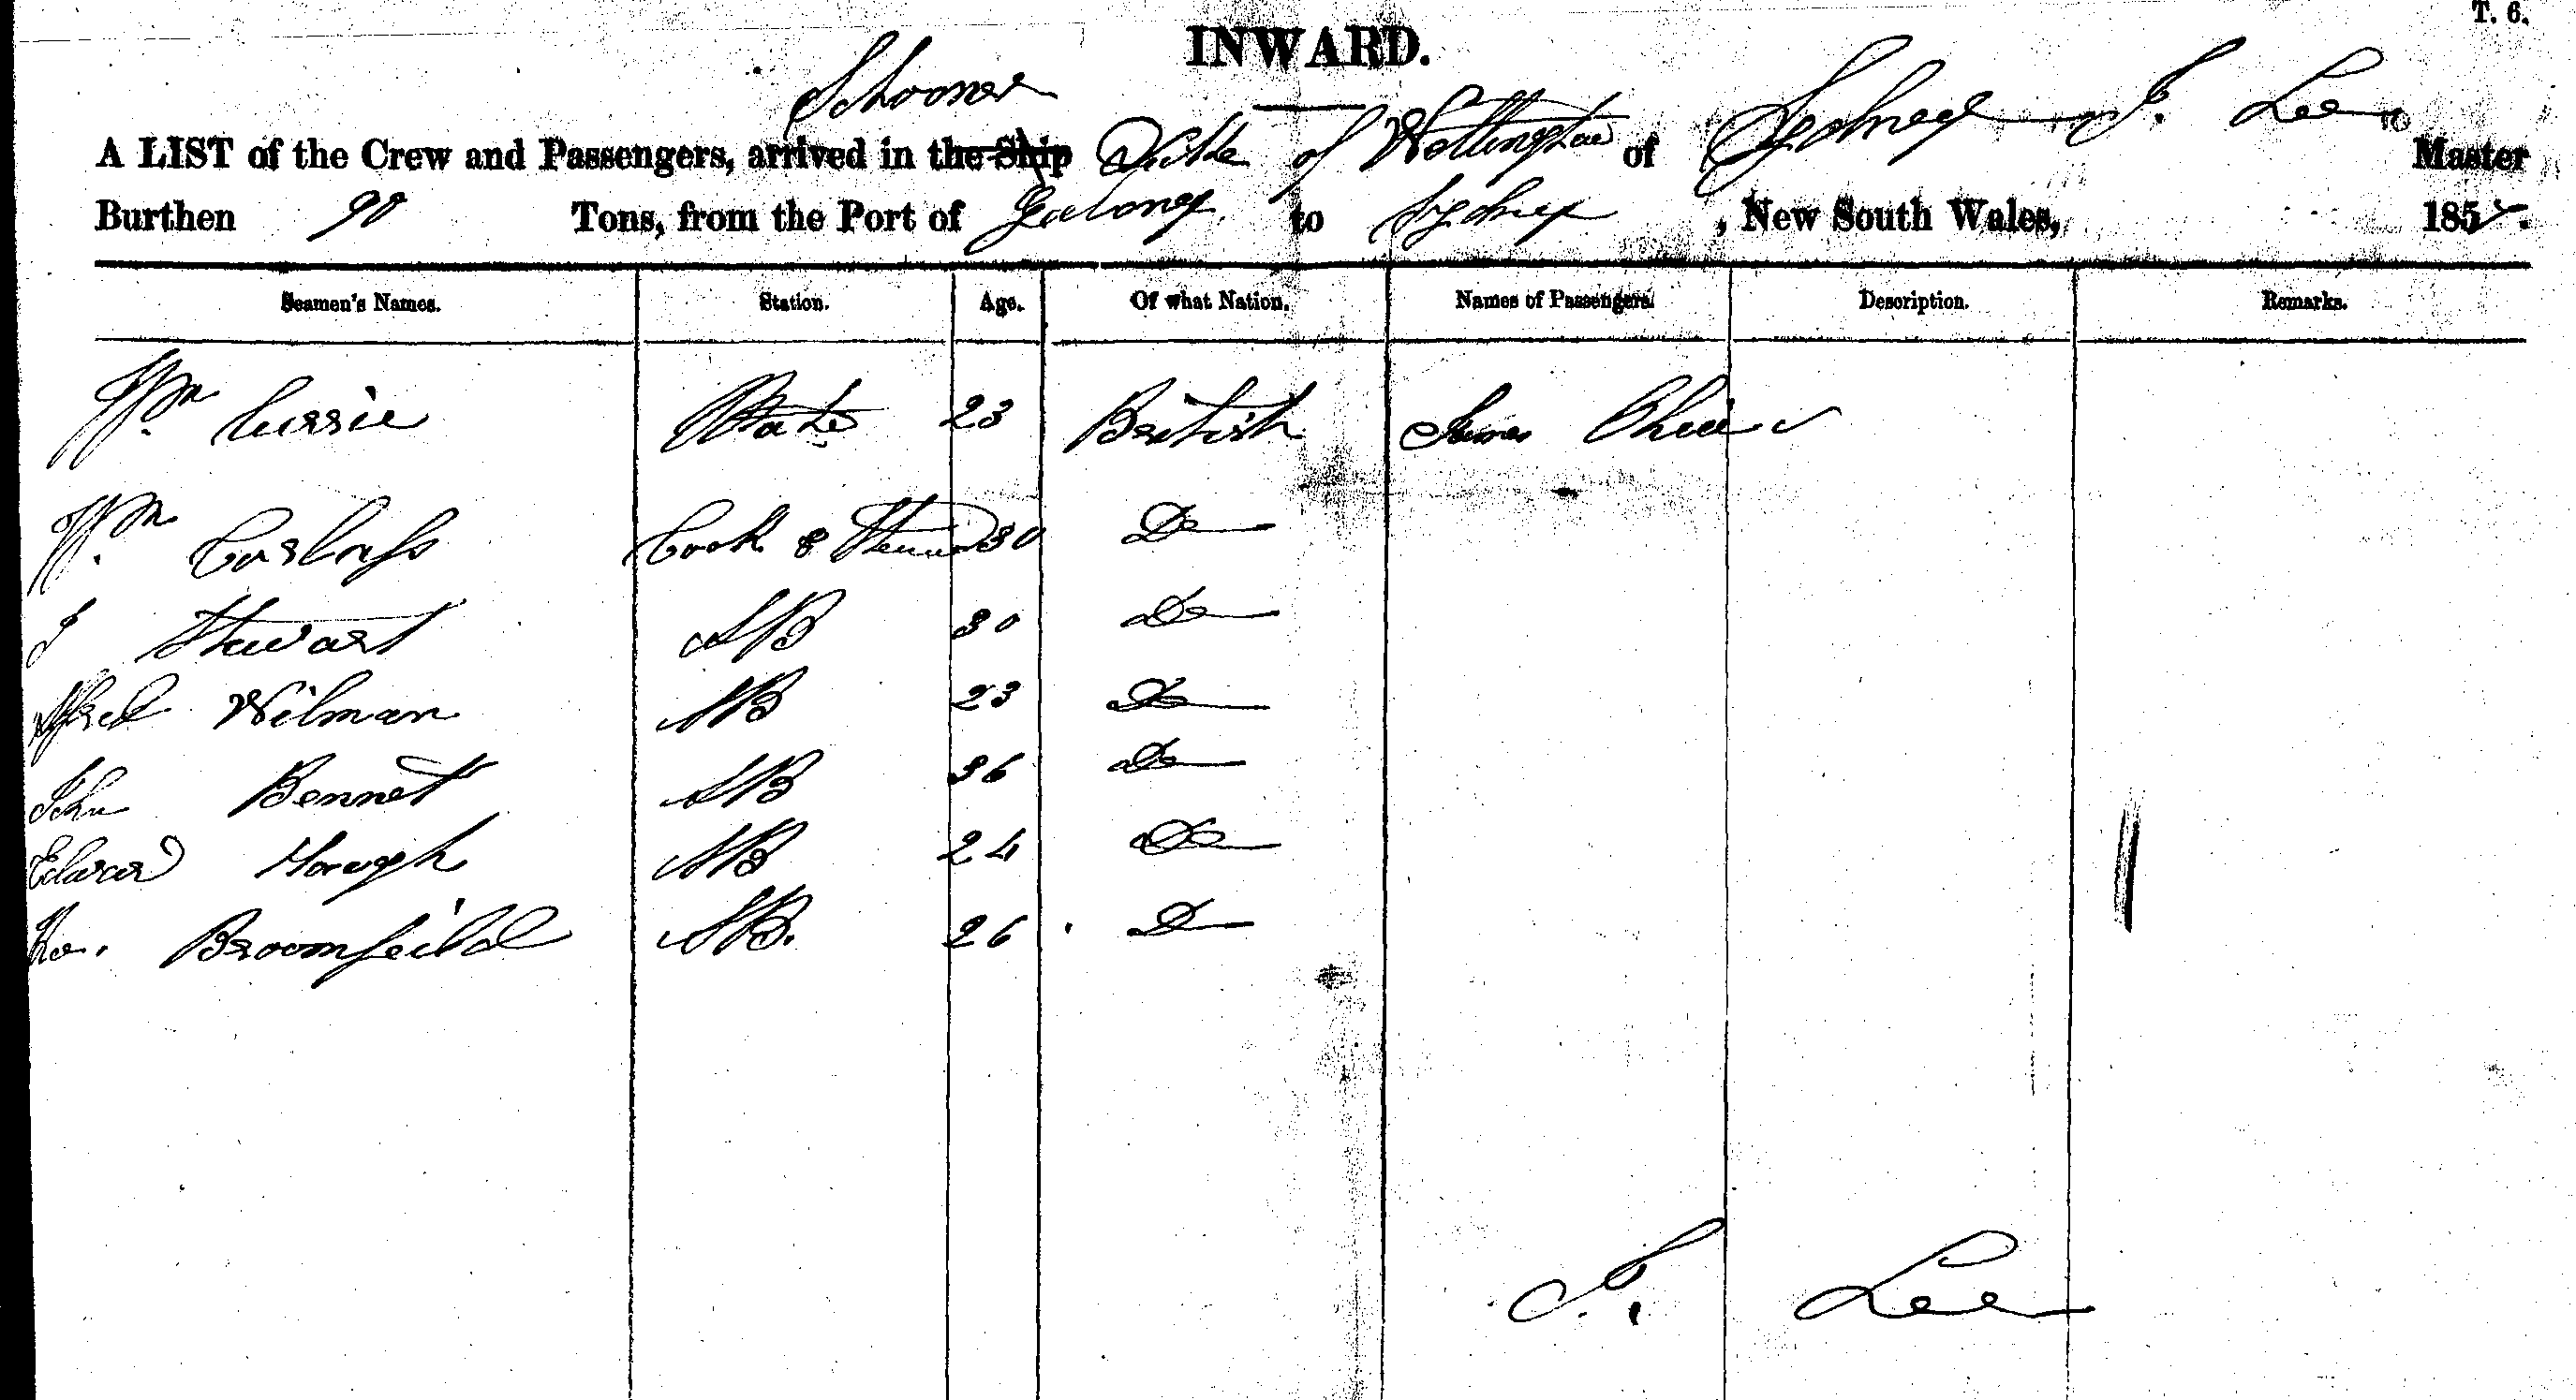 T. 6.
INWARD.
Schooner
A LIST of the Crew and Passengers, arrived in the Ship Duke of Wellington of Sydney J. Lee Master
Burthen 90 Tons, from the Port of Geelong to Sydney, New South Wales, 185
Seamen's Names. Station. Age. Of what Nation. Names of Passengers. Description. Remarks.
Wm Currie Mate 23 British James
Wm Cook & Steward 30 Do
J Stewart AB 30 Do
Alfred Wilman AB 23 Do
John Bennet AB 36 Do
Edward Hough AB 24 Do
Broomfeild AB. 26 Do
J. Lee